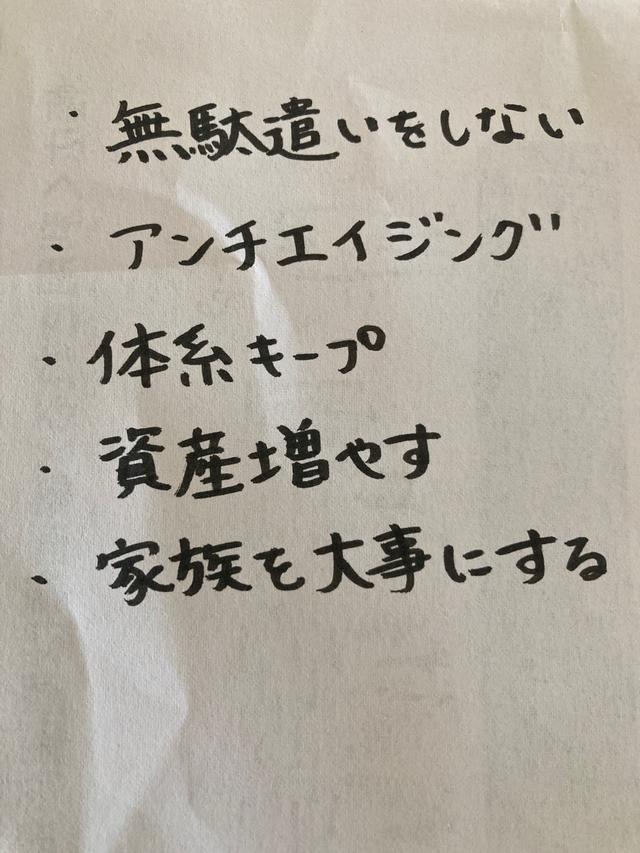 ・無駄遣いをしない
・アンチエイジング
・体系キープ
・資産増やす
・家族を大事にする